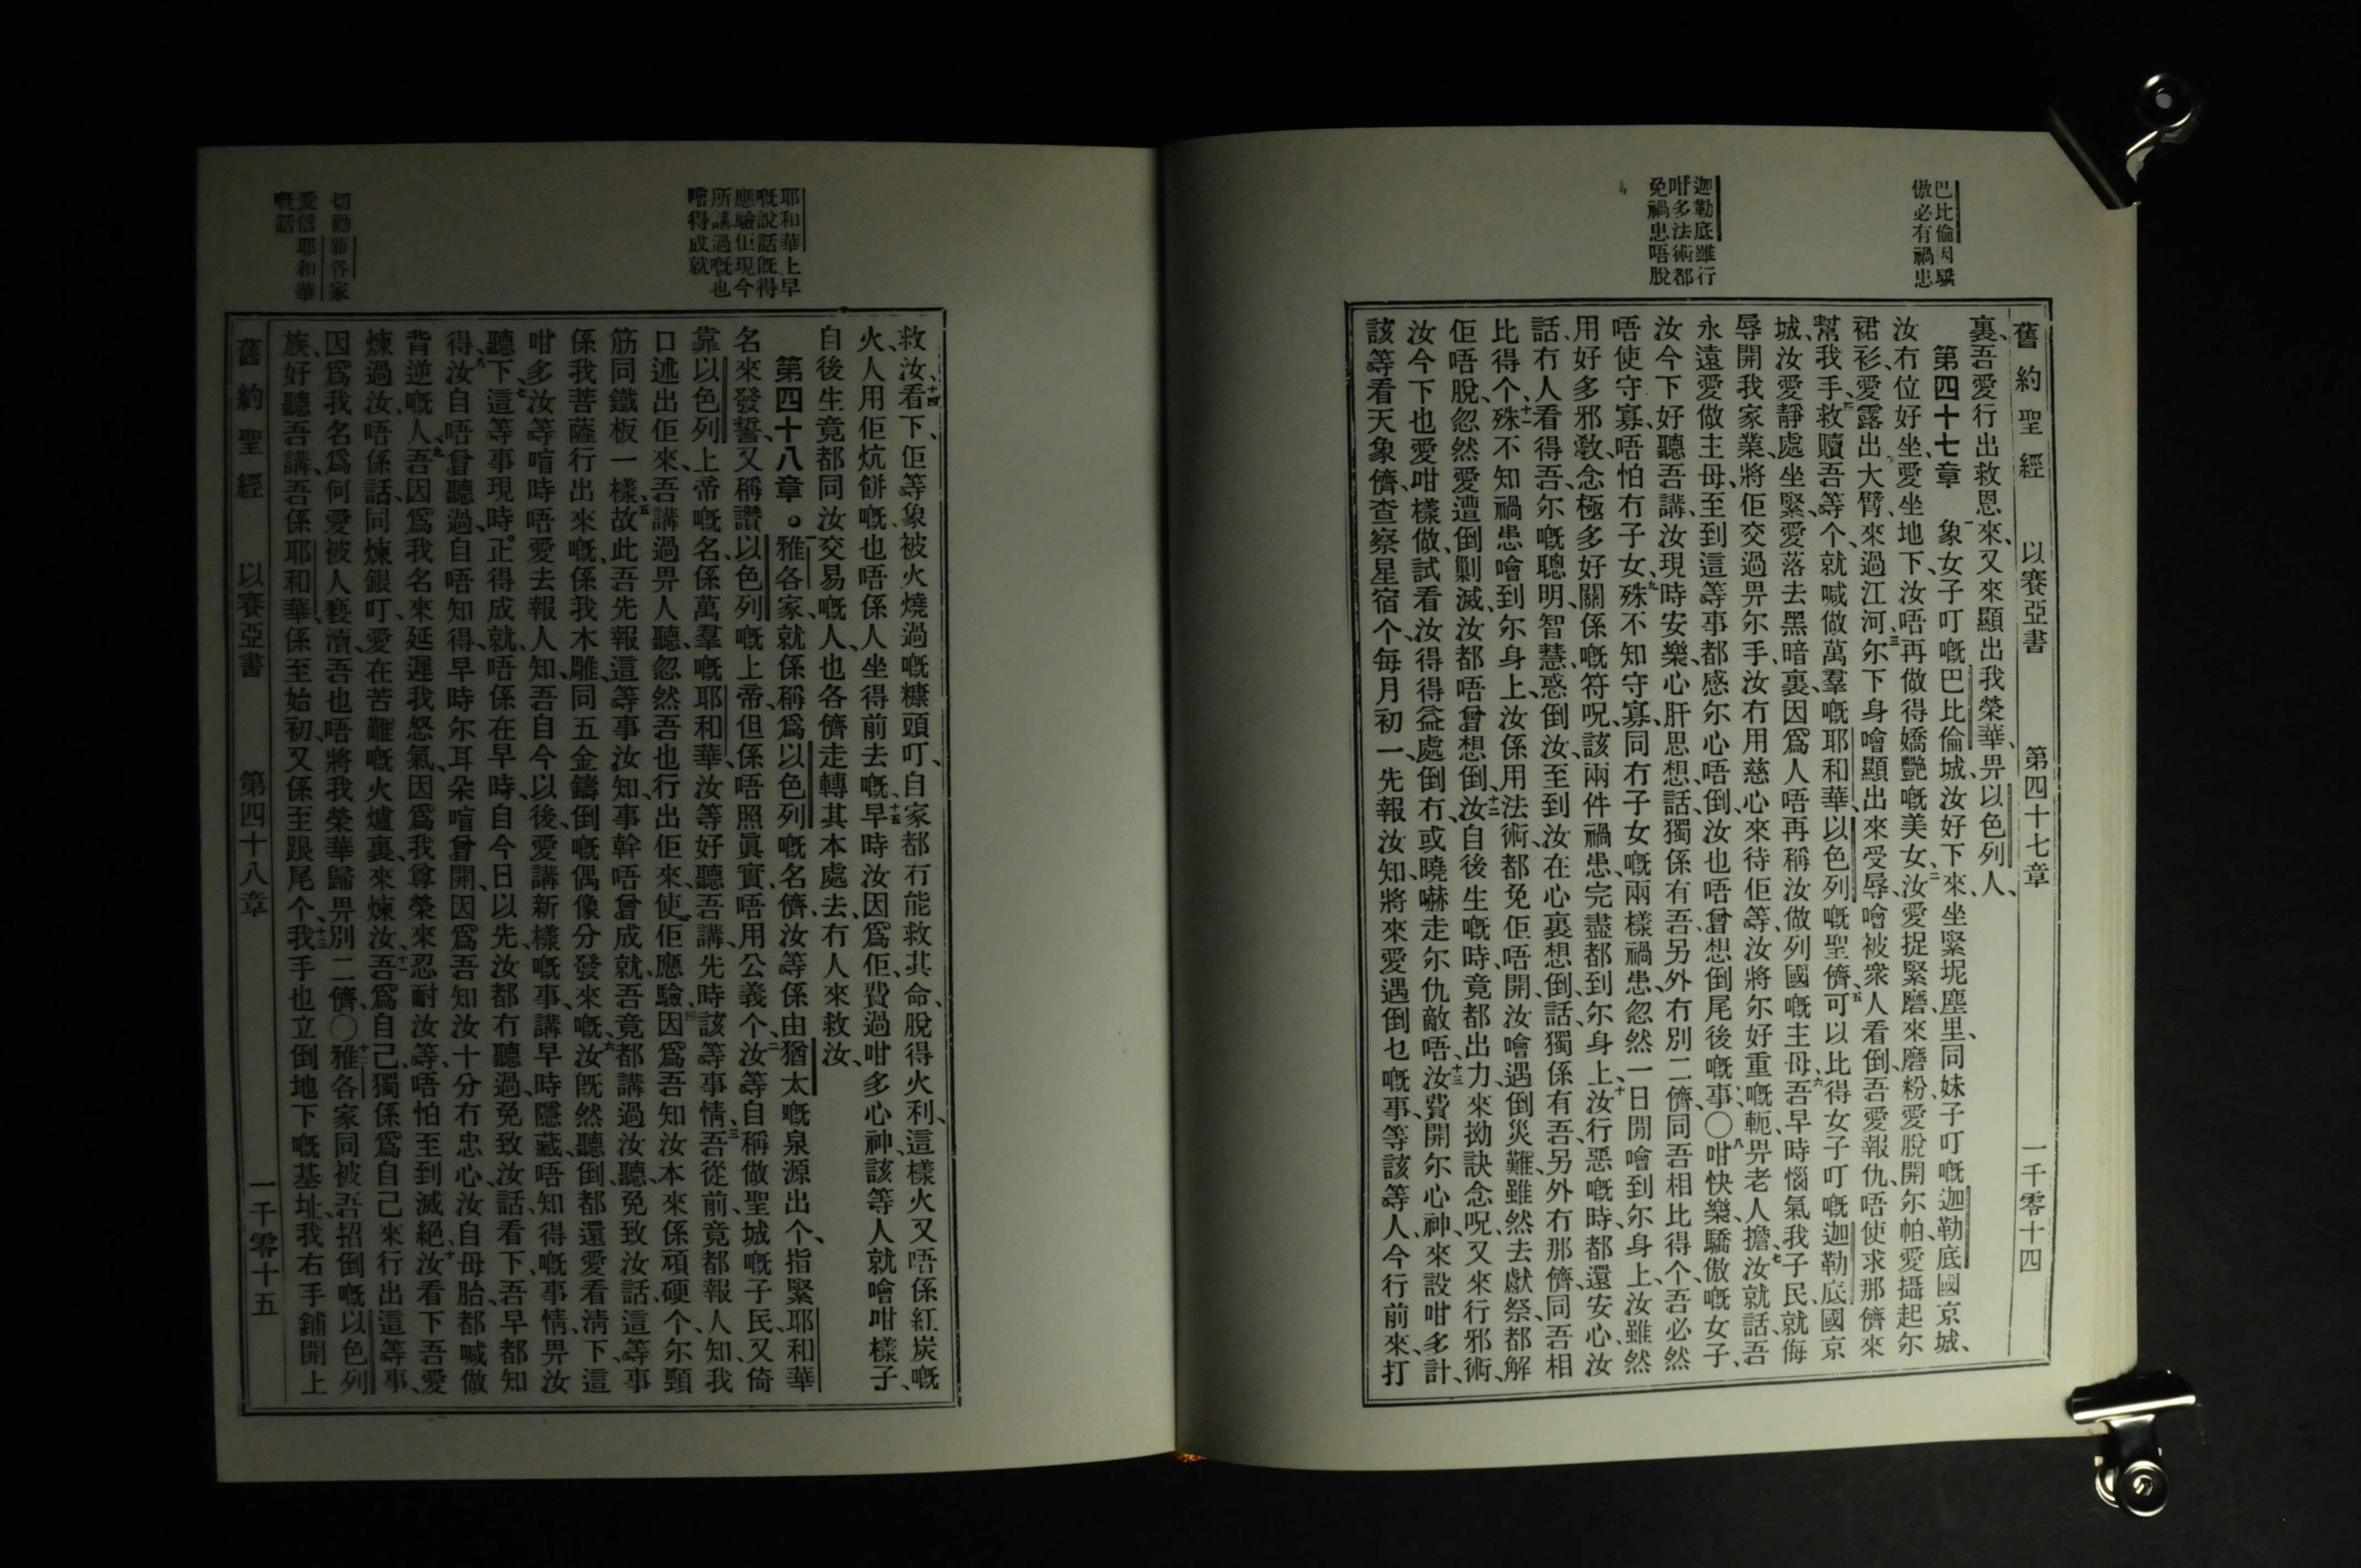 巴比倫因驕
傲必有禍患
迦勒底雖行
咁多法術都
免禍患唔脫
舊約聖經 以賽亞書 第四十七章 一千零十四
裏、吾愛行出救恩來、又來顯出我榮華、畀以色列人、
第四十七章 一象女子叮嘅巴比倫城、汝好下來、坐緊坭塵里、同妹子叮嘅迦勒底國京城、
汝冇位好坐、愛坐地下、汝唔再做得嬌艷嘅美女、二汝愛捉緊磨來磨粉、愛脫開尔帕、愛攝起尔
裙衫、愛露出大臂、來過江河、三尔下身噲顯出來受辱、噲被衆人看倒、吾愛報仇、唔使求那儕來
幫我手、四救贖吾等个、就喊做萬羣嘅耶和華、以色列嘅聖儕、五可以比得女子叮嘅迦勒底國京
城、汝愛靜處坐緊、愛落去黑暗裏、因爲人唔再稱汝做列國嘅主母、六吾早時惱氣我子民、就侮
辱開我家業、將佢交過畀尔手、汝冇用慈心來待佢等、汝將尔好重嘅軛、畀老人擔、七汝就話、吾
永遠愛做主母、至到這等事都感尔心唔倒、汝也唔曾想倒尾後嘅事、〇八咁快樂驕傲嘅女子、
汝今下好聽吾講、汝現時安樂、心肝思想、話、獨係有吾、另外冇別二儕、同吾相比得个、吾必然
唔使守寡、唔怕冇子女、九殊不知守寡、同冇子女嘅兩樣禍患、忽然一日閒噲到尔身上、汝雖然
用好多邪敎、念極多好關係嘅符呪、該兩件禍患完盡都到尔身上、十汝行惡嘅時、都還安心、汝
話、冇人看得吾、尔嘅聰明智慧、惑倒汝、至到汝在心裏想倒、話、獨係有吾、另外冇那儕、同吾相
比得个、十一殊不知禍患噲到尔身上、汝係用法術、都免佢唔開、汝噲遇倒災難、雖然去獻祭、都解
佢唔脫、忽然愛遭倒剿滅、汝都唔曾想倒、十二汝自後生嘅時、竟都出力、來拗訣念呪、又來行邪術、
汝今下也愛咁樣做、試看汝得得益處倒冇、或曉嚇走尔仇敵唔、十三汝費開尔心神、來設咁多計、
該等看天象儕、查察星宿个、每月初一、先報汝知、將來愛遇倒乜嘅事、等該等人、今行前來、打
耶和華上早
嘅說話旣得
應驗佢現今
所講過嘅也
噲得成就
切勸雅各家
愛信耶和華
嘅話
救汝、十四看下、佢等象被火燒過嘅糠頭叮、自家都冇能救其命、脫得火利、這樣火又唔係紅炭嘅
火、人用佢炕餅嘅、也唔係人坐得前去嘅、十五早時汝因爲佢、費過咁多心神、該等人就噲咁樣子、
自後生竟都同汝交易嘅人、也各儕走轉其本處去、冇人來救汝、
第四十八章。一雅各家、就係稱爲以色列嘅名儕、汝等係由猶太嘅泉源出个、指緊耶和華
名來發誓、又稱讚以色列嘅上帝、但係唔照眞實、唔用公義个、二汝等自稱做聖城嘅子民、又倚
靠以色列上帝嘅名、係萬羣嘅耶和華、汝等好聽吾講、先時該等事情、三吾從前竟都報人知、我
口述出佢來、吾講過畀人聽、忽然吾也行出佢來、使佢應驗、四因爲吾知汝本來係頑硬个、尔頸
筋同鐵板一樣、五故此吾先報這等事汝知、事幹唔曾成就、吾竟都講過汝聽、免致汝話、這等事
係我菩薩行出來嘅、係我木雕、同五金鑄倒嘅偶像分發來嘅、六汝旣然聽倒、都還愛看淸下、這
咁多、汝等喧時唔愛去報人知、吾自今以後、愛講新樣嘅事、講早時隱藏、唔知得嘅事情、畀汝
聽下、七這等事現時正得成就、唔係在早時、自今日以先、汝都冇聽過、免致汝話、看下、吾早都知
得、八汝自唔曾聽過、自唔知得、早時尔耳朵喧曾開、因爲吾知汝十分冇忠心、汝自母胎、都喊做
背逆嘅人、九吾因爲我名來延遲我怒氣、因爲我尊榮來忍耐汝等、唔怕至到滅絕汝、十看下、吾愛
煉過汝、唔係話、同煉銀叮、愛在苦難嘅火爐裏、來煉汝、十一吾爲自己、獨係爲自己來行出這等事、
因爲我名爲何愛被人褻瀆、吾也唔將我榮華歸畀別二儕、〇十二雅各家、同被吾招倒嘅以色列
族、好聽吾講、吾係耶和華、係至始初、又係至跟尾个、十三我手也立倒地下嘅基址、我右手鋪開上
舊約聖經 以賽亞書 第四十八章 一千零十五